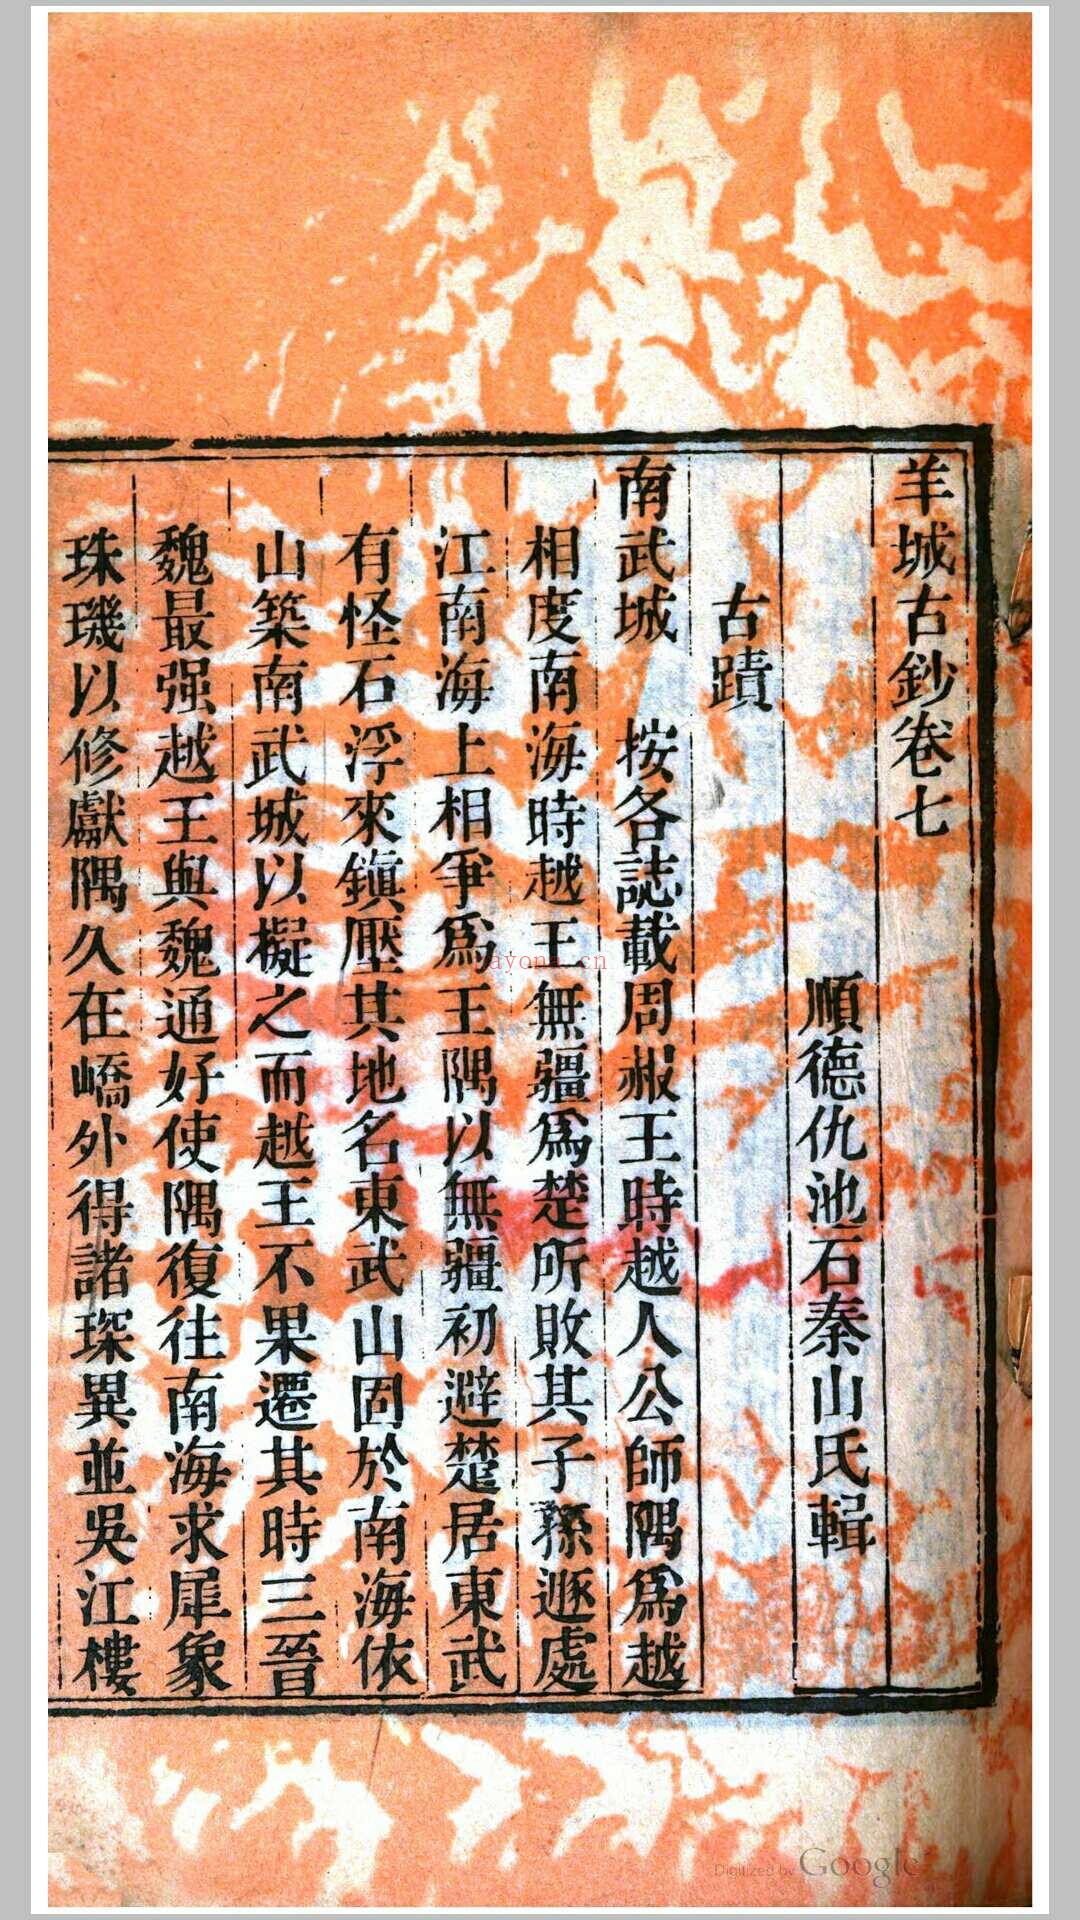 羊城古鈔卷七
順德仇池石秦山氏輯
古蹟
南武城　按各誌載周赧王時越人公師隅為越
相度南海時越王無疆為楚所敗其子孫遯處
江南海上相爭為王隅以無疆初避楚居東武
有怪石浮來鎮壓其地名東武山固於南海依
山築南武城以擬之而越王不果遷其時三晉
魏最强越王與魏通好使隅復往南海求犀象
珠璣以修獻隅久在嶠外得諸琛異並吳江樓
ayona.cn
Digitized by Google